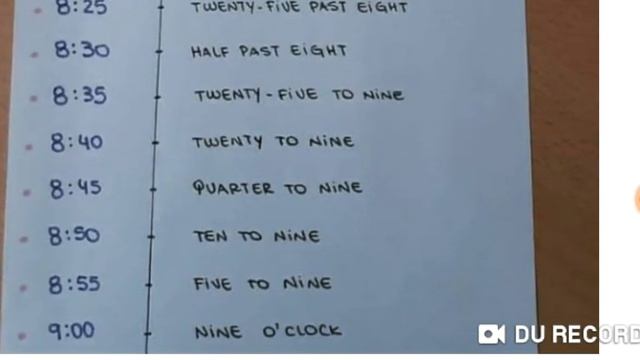 8:25 TWENTY-FIVE PAST EIGHT
8:30 HALF PAST EIGHT
8:35 TWENTY-FIVE TO NINE
8:40 TWENTY TO NINE
8:45 QUARTER TO NINE
8:50 TEN TO NINE
8:55 FIVE TO NINE
9:00 NINE O'CLOCK
DU RECORD